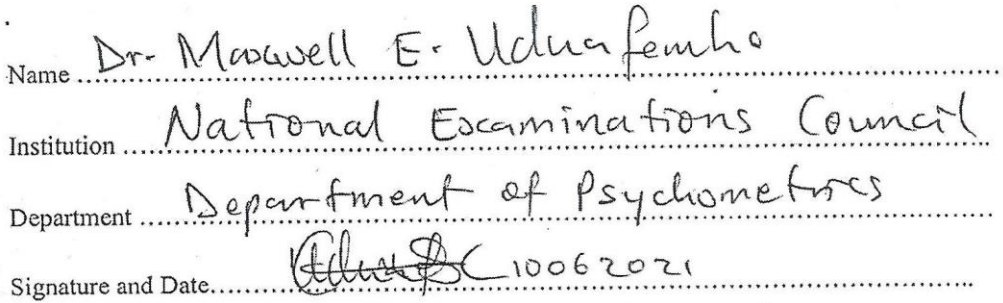 Name Dr. Maxwell E. Uduafemhe
Institution National Examinations Council
Department Department of Psychometrics
Signature and Date 10062021